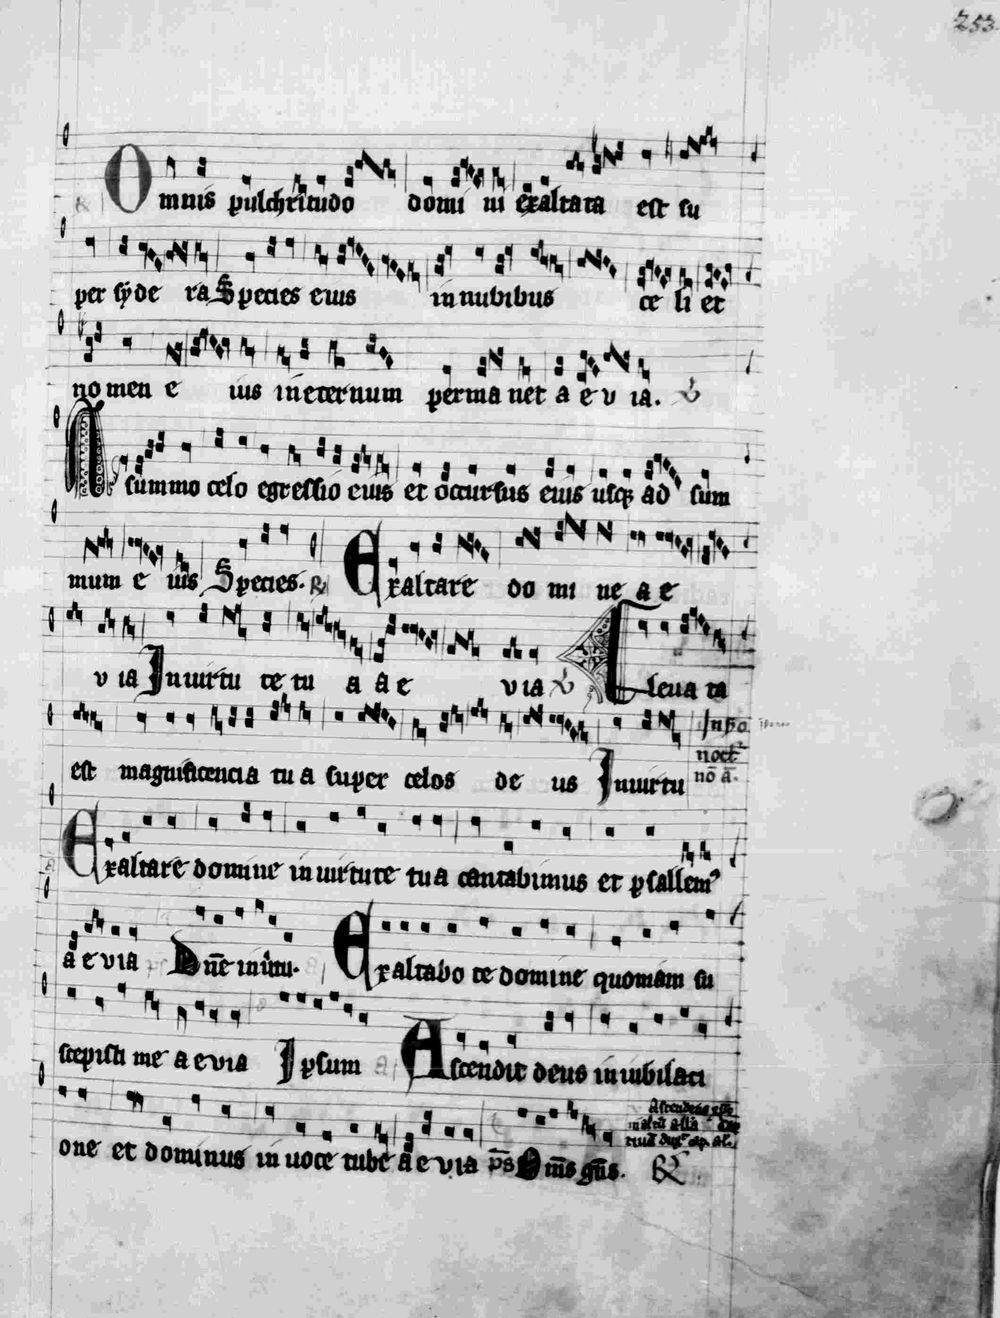 253.
Omnis pulchritudo domi ni exaltata est su
per syde ra Species eius in nubibus ce li et
no men e ius in eternum perma net a e v ia.
A summo celo egressio eius et occursus eius usq ad sum
mum e ius Species. Exaltare do mi ne a e
v ia In uirtu te tu a a e v ia Eleua ta
est magnificencia tu a super celos de us In uirtu
noct
no a.
Exaltare domine in uirtute tu a cantabimus et psallem
a e v ia Dne in uirtu. Exaltabo te domine quoniam su
scepisti me a e v ia Ipsum Ascendit deus in iubilaci
one et dominus in uoce tube a e v ia ps Dns